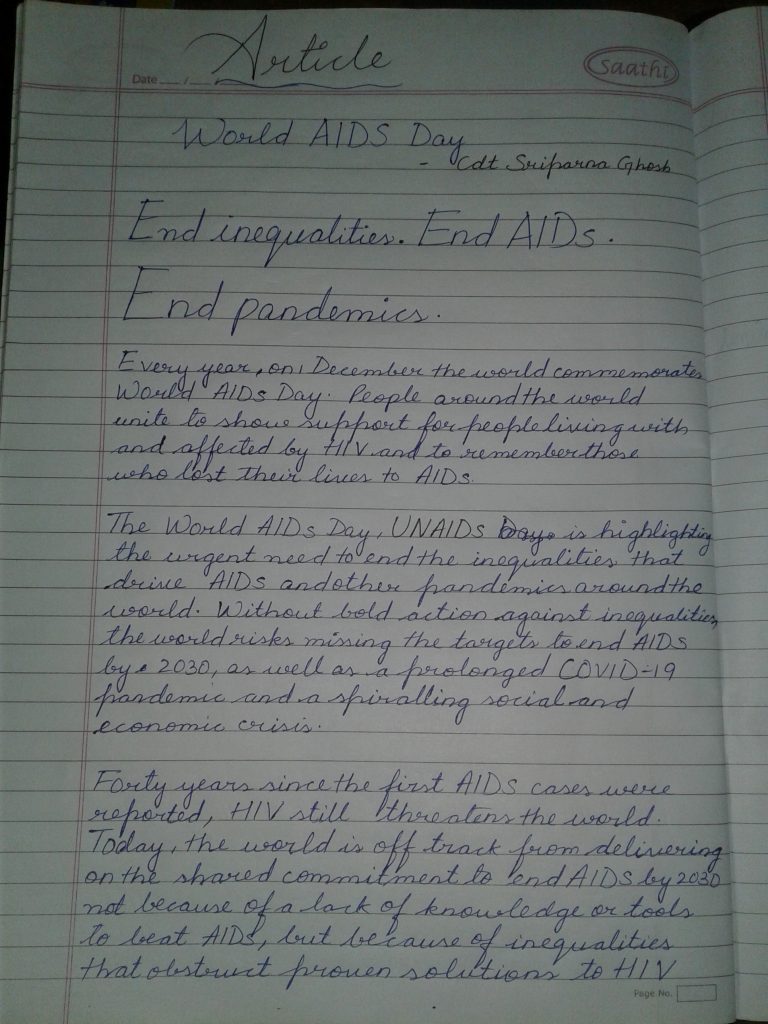 Article
Date
saathi
World AIDS Day
- Cdt Sriparna Ghosh
End inequalities. End AIDs.
End pandemics.
Every year, on 1 December the world commemorates
World AIDs Day. People around the world
unite to show support for people living with
and affected by HIV and to remember those
who lost their lives to AIDs.
The World AIDs Day, UNAIDs is highlighting
the urgent need to end the inequalities that
drive AIDs and other pandemics around the
world. Without bold action against inequalities,
the world risks missing the targets to end AIDS
by 2030, as well as a prolonged COVID-19
pandemic and a spiralling social and
economic crisis.
Forty years since the first AIDS cases were
reported, HIV still threatens the world.
Today, the world is off track from delivering
on the shared commitment to end AIDS by 2030
not because of a lack of knowledge or tools
to beat AIDs, but because of inequalities
that obstruct proven solutions to HIV
Page No.